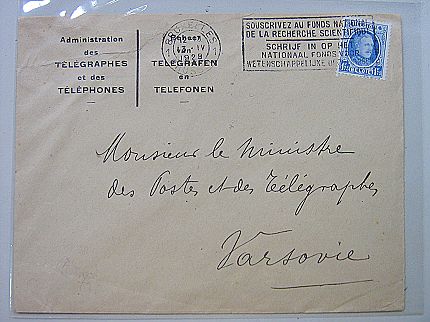 Administration
des
TÉLÉGRAPHES
et des
TÉLÉPHONES
Beheer
van
TELEGRAFEN
en
TELEFONEN
BRUXELLES
IV
1929
SOUSCRIVEZ AU FONDS NATIONAL
DE LA RECHERCHE SCIENTIFIQUE
SCHRIJF IN OP HET
NATIONAAL FONDS VOOR
WETENSCHAPPELIJK
Monsieur le Ministre
des Postes et des Télégraphes
Varsovie